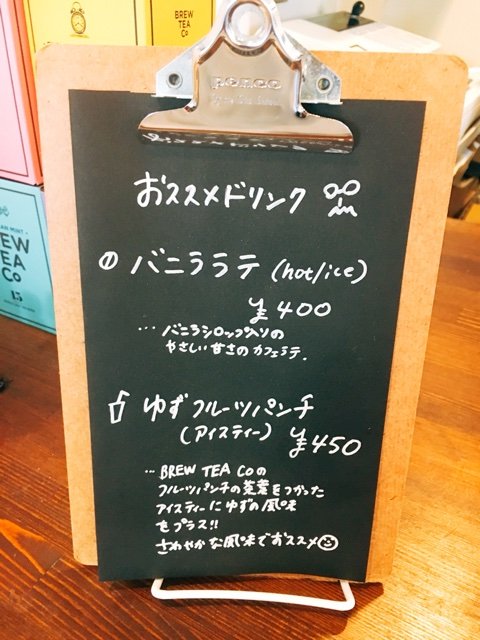 BREW
TEA
Co
penco
おススメドリンク
バニララテ (hot/ice)
¥400
… バニラシロップ入りの
やさしい甘さのカフェラテ.
ゆずフルーツパンチ
(アイスティー) ¥450
… BREW TEA Coの
フルーツパンチの茶葉をつかった
アイスティーにゆずの風味
をプラス!!
さわやかな風味でおススメ
BREW
TEA
Co
15